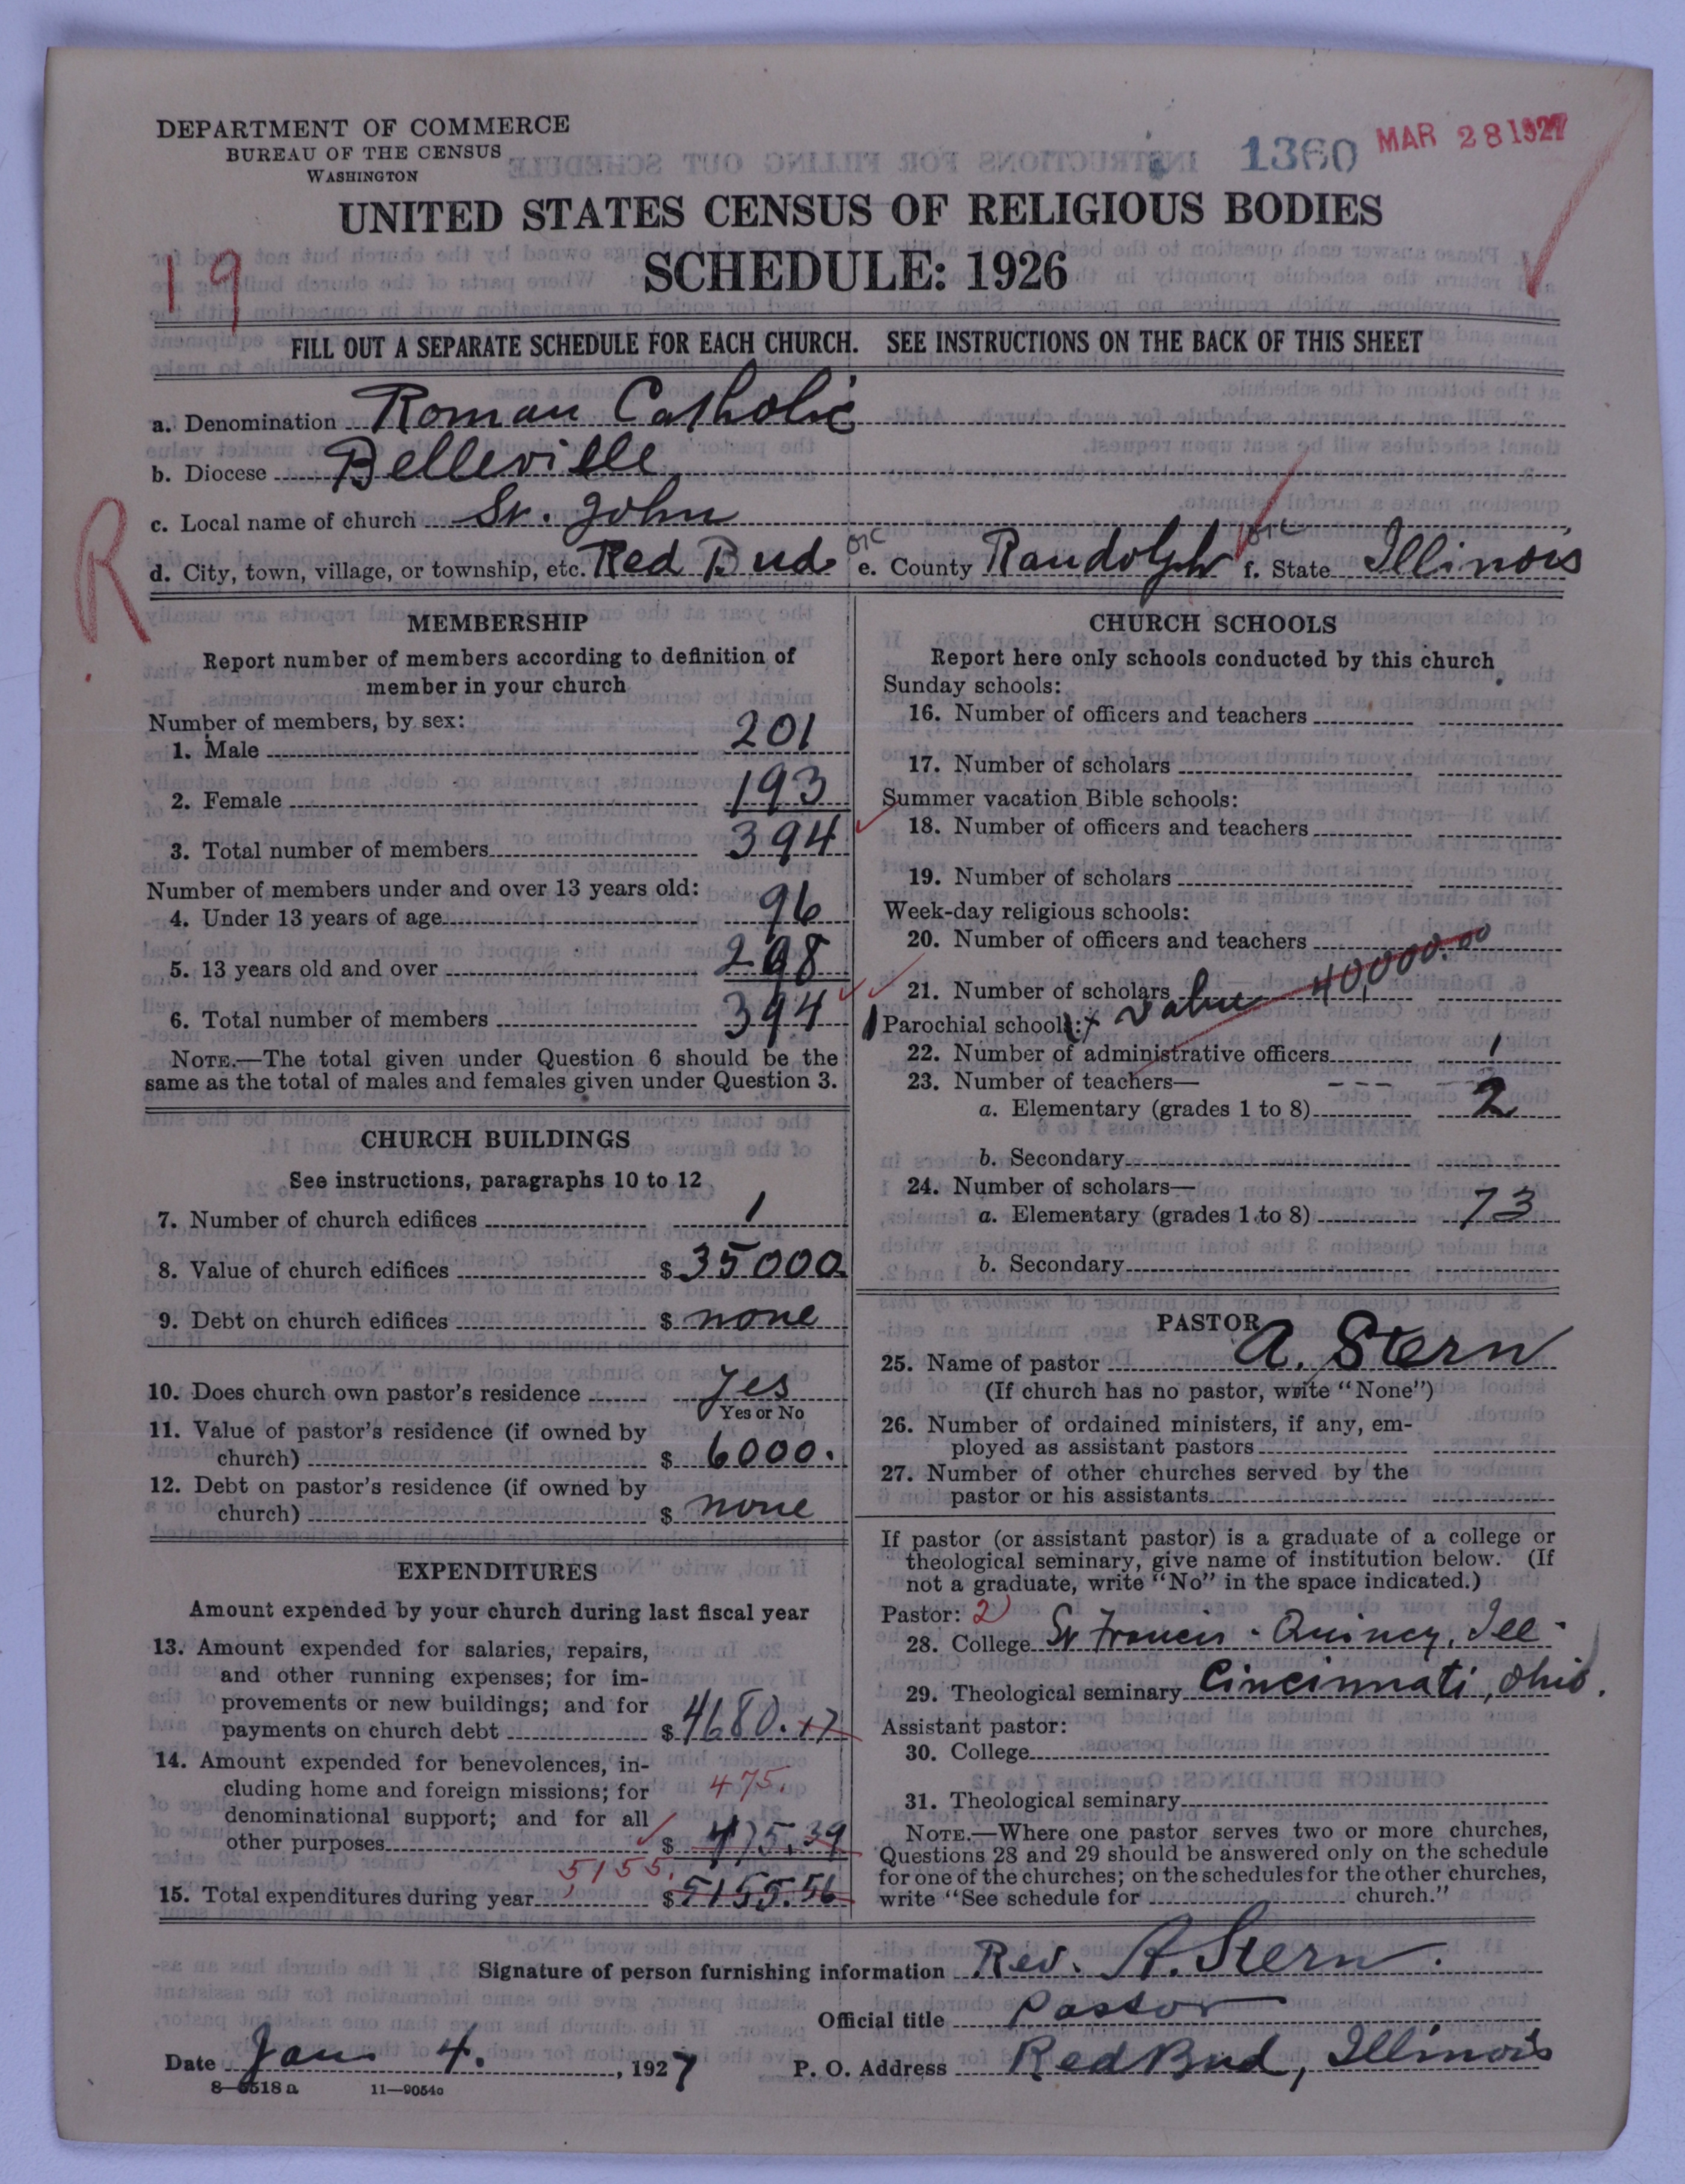 DEPARTMENT OF COMMERCE
BUREAU OF THE CENSUS
WASHINGTON
1360 MAR 28 1927
UNITED STATES CENSUS OF RELIGIOUS BODIES
SCHEDULE: 1926
19
FILL OUT A SEPARATE SCHEDULE FOR EACH CHURCH. SEE INSTRUCTIONS ON THE BACK OF THIS SHEET
a. Denomination Roman Catholic
b. Diocese Belleville
c. Local name of church St. John
R
d. City, town, village, or township, etc. Red Bud e. County Randolph f. State Illinois
MEMBERSHIP
Report number of members according to definition of
member in your church
Number of members, by sex:
1. Male 201
2. Female 193
3. Total number of members 394
Number of members under and over 13 years old:
4. Under 13 years of age 96
5. 13 years old and over 298
6. Total number of members 394
NOTE.—The total given under Question 6 should be the
same as the total of males and females given under Question 3.
CHURCH BUILDINGS
See instructions, paragraphs 10 to 12
7. Number of church edifices 1
8. Value of church edifices $ 35000
9. Debt on church edifices $ none
10. Does church own pastor's residence yes
Yes or No
11. Value of pastor's residence (if owned by
church) $ 6000.
12. Debt on pastor's residence (if owned by
church) $ none
EXPENDITURES
Amount expended by your church during last fiscal year
13. Amount expended for salaries, repairs,
and other running expenses; for im-
provements or new buildings; and for
payments on church debt $ 4680.17
14. Amount expended for benevolences, in-
cluding home and foreign missions; for 475.
denominational support; and for all
other purposes $ 475.39
5155.
15. Total expenditures during year $ 5155.56
CHURCH SCHOOLS
Report here only schools conducted by this church
Sunday schools:
16. Number of officers and teachers
17. Number of scholars
Summer vacation Bible schools:
18. Number of officers and teachers
19. Number of scholars
Week-day religious schools:
20. Number of officers and teachers
21. Number of scholars
Parochial schools: value 40,000.00
22. Number of administrative officers 1
23. Number of teachers—
a. Elementary (grades 1 to 8) 2
b. Secondary
24. Number of scholars—
a. Elementary (grades 1 to 8) 73
b. Secondary
PASTOR
25. Name of pastor A. Stern
(If church has no pastor, write "None")
26. Number of ordained ministers, if any, em-
ployed as assistant pastors
27. Number of other churches served by the
pastor or his assistants
If pastor (or assistant pastor) is a graduate of a college or
theological seminary, give name of institution below. (If
not a graduate, write "No" in the space indicated.)
Pastor: 2
28. College St Francis - Quincy, Ill.
29. Theological seminary Cincinnati, Ohio.
Assistant pastor:
30. College
31. Theological seminary
NOTE.—Where one pastor serves two or more churches,
Questions 28 and 29 should be answered only on the schedule
for one of the churches; on the schedules for the other churches,
write "See schedule for church."
Signature of person furnishing information Rev. A. Stern.
Official title Pastor
Date Jan 4. , 1927 P. O. Address Red Bud, Illinois
8—6518 a 11—9054a